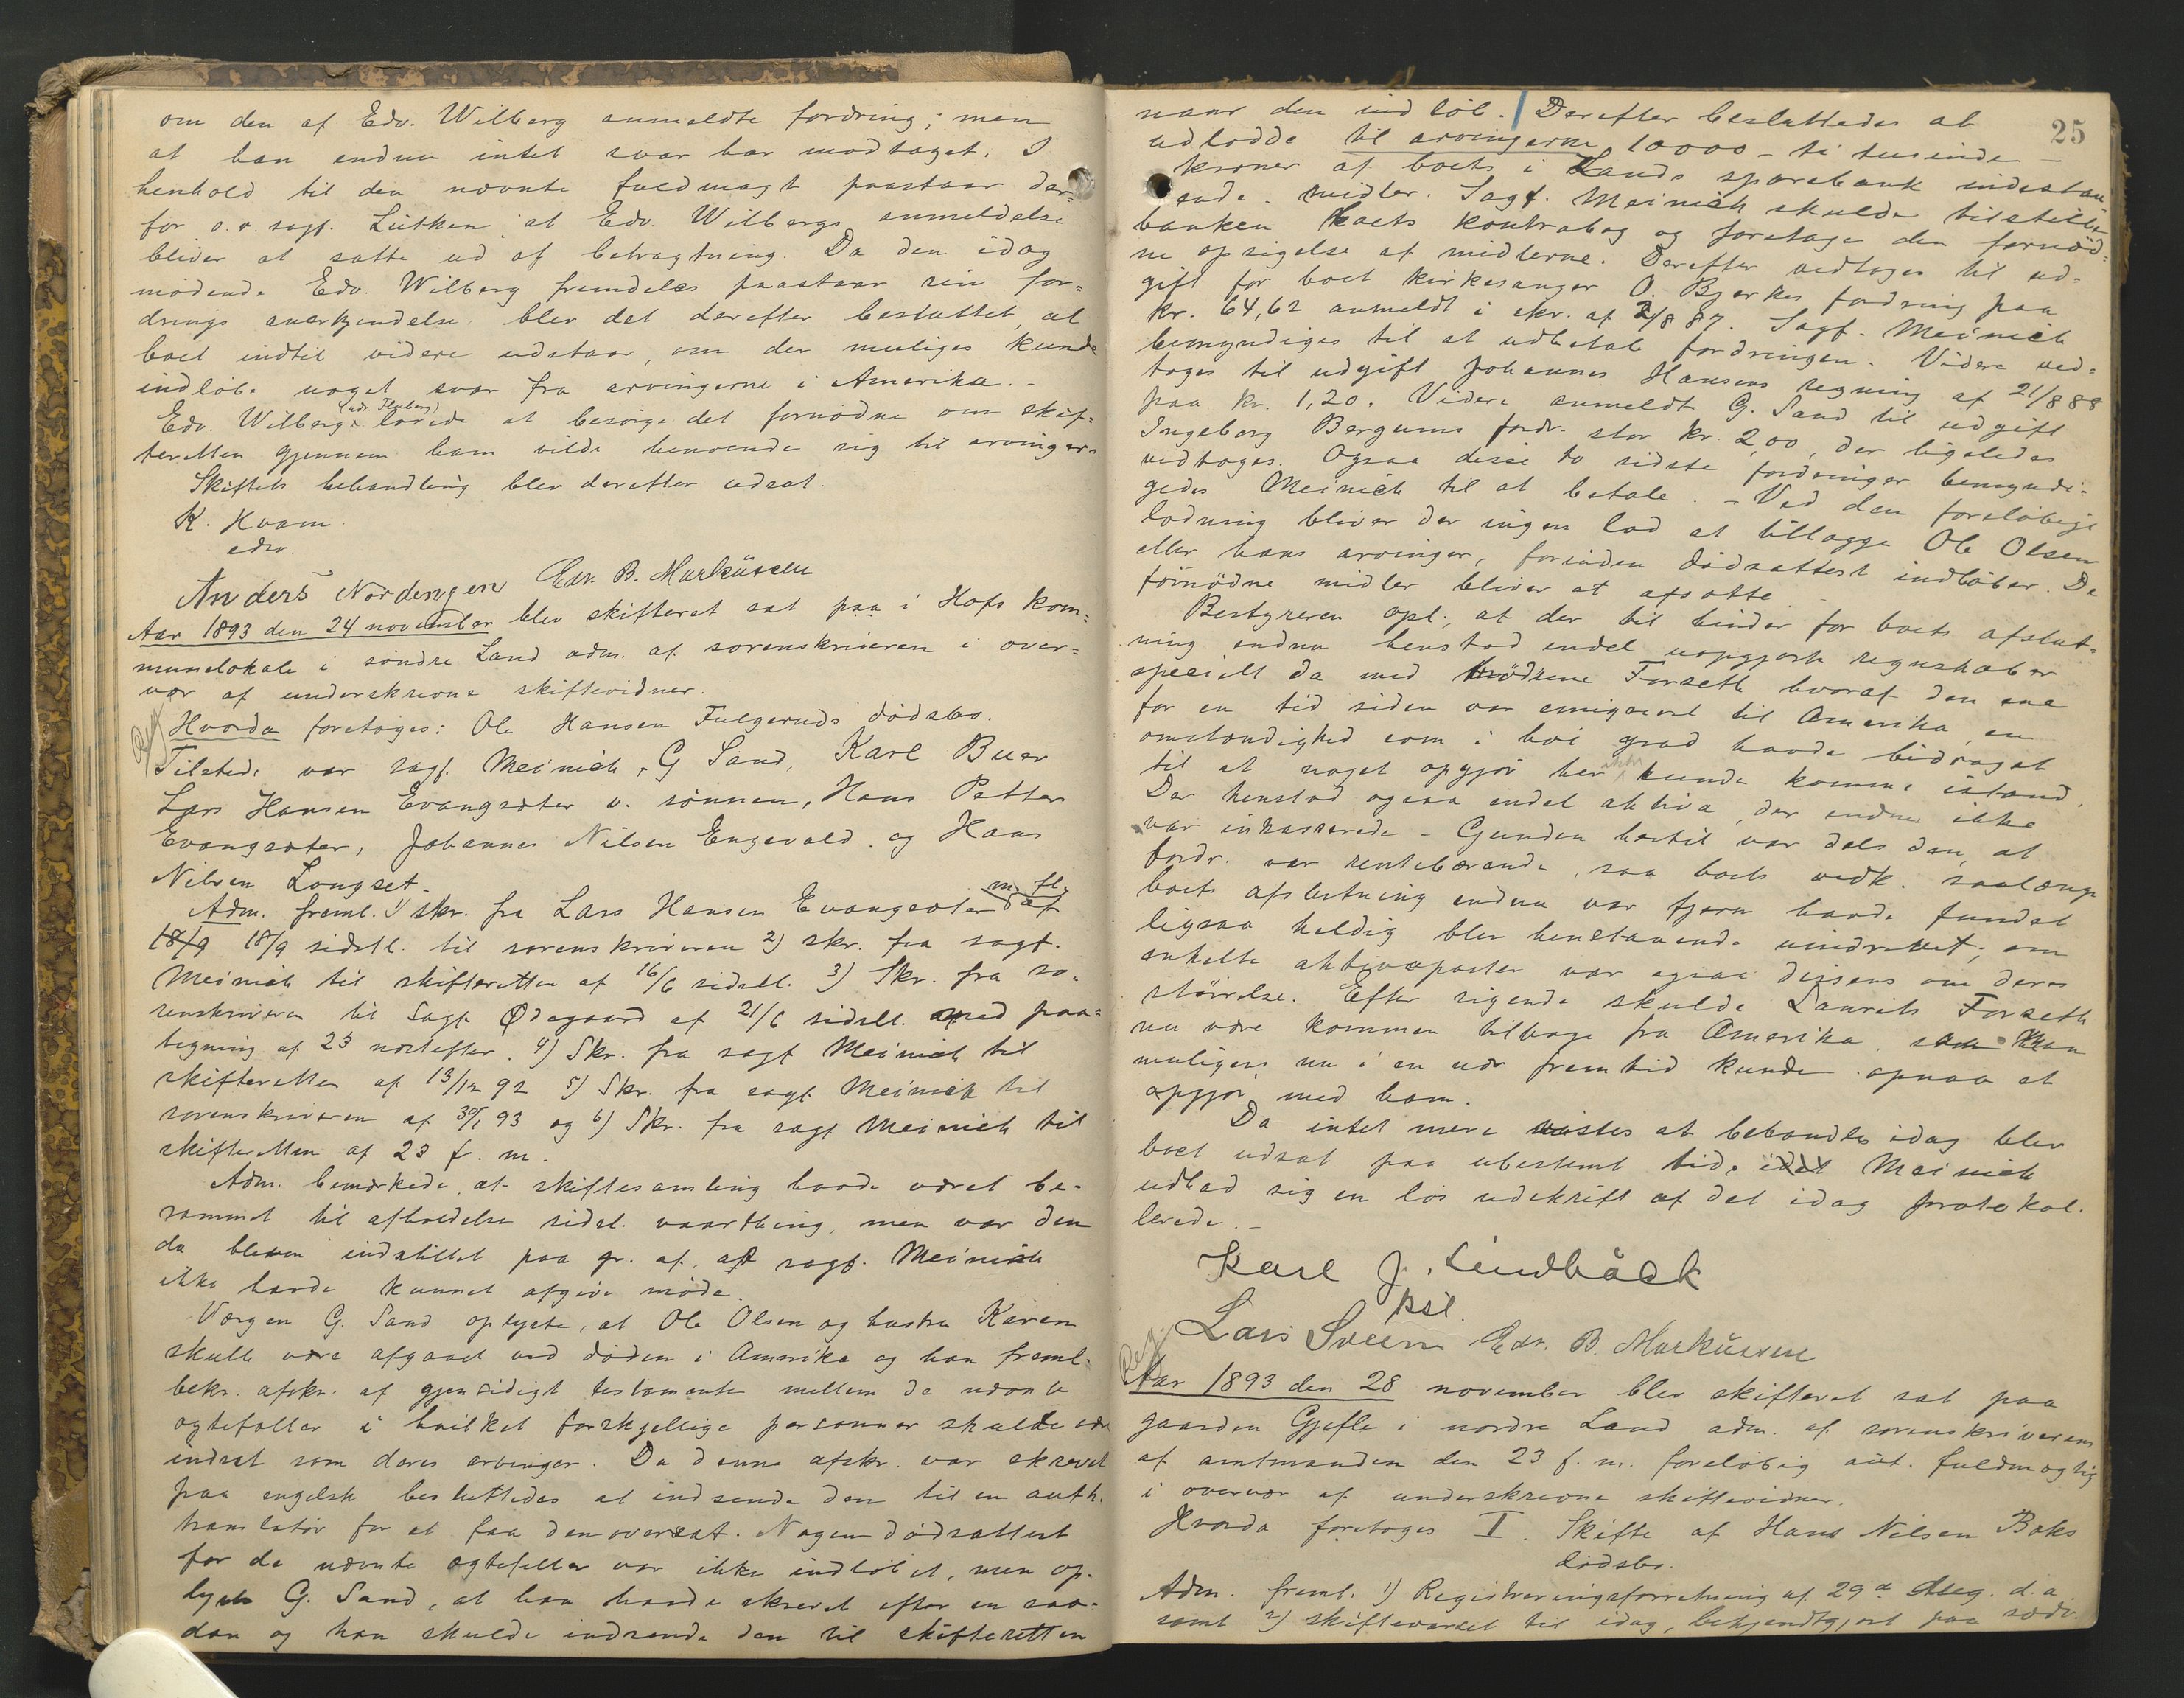 om den af Edv. Wilberg anmeldte fordring; men
at han endnu intet svar har modtaget. I
henhold til den nævnte fuldmagt paastaar der=
for o.r.sagf. Lütken at Edv. Wilbergs anmeldelse
bliver at sætte ud af betragtning. Da den idag
mødende Edv. Wilberg fremdeles paastaar sin for=
drings anerkjendelse, blev det derefter besluttet, at
boet indtil videre udstaar, om der muliges kunde
indløbe noget svar fra arvingerne i Amerika. –
Edv. Wilberg (adr. Fluberg) lovede at besørge det fornødne om skif=
teretten gjennem ham vilde henvende sig til arvinger.
Skiftets behandling blev derefter udsat.
K. Hvam.
edsv.
Anders Nordengen Edv. B. Markússen
Aar 1893 den 24 november blev skifteret sat paa i Hofs kom=
munelokale i søndre Land adm. af sorenskriveren i over=
vær af underskrevne skiftevidner.
Reg
Hvorda foretoges: Ole Hansen Fulgeruds dødsbo.
Tilstede var sagf. Meinich, G Sand, Karl Buer
Lars Hansen Evangsæter v. sønnen, Hans Petter
Evangsæter, Johannes Nilsen Engevold. og Hans
Nilsen Longset.
Adm. freml. 1) skr. fra Lars Hansen Evangsæter m. fl. af
18/9 18/9 sidstl. til sorenskriveren 2) skr. fra sagf.
Meinich til skifteretten af 16/6 sidstl. 3) Skr. fra so-
renskriveren til Sagf. Ødegaard af 21/6 sidstl. med paa=
tegning af 23 næstefter. 4) Skr. fra sagf Meinich til
skifteretten af 13/12 92 5) Skr. fra sagf. Meinich til
sorenskriveren af 30/1 93 og 6) Skr. fra sagf Meinich til
skifteretten af 23 f. m.
Adm. bemærkede, at skiftesamling havde været be-
rammet til afholdelse sidstl. vaarthing, men var den
da bleven indstillet paa gr. af, at sagf. Meinich
ikke havde kunnet afgive møde.
Værgen G. Sand oplyste, at Ole Olsen og hustru Karen
skulle være afgaaet ved døden i Amerika og han freml.
bekr. afskr. af gjensidigt testamente mellem de nævnte
ægtefæller i hvilket forskjellige personner skulde være
indsat som deres arvinger. Da denne afskr. var skrevet
paa engelsk besluttedes at indsende den til en auth.
translatør for at faa den oversat. Nogen dødsattest
for de nævnte ægtefeller var ikke indløbet, men op-
lyste G. Sand, at han havde skrevet efter en saa-
dan og han skulde indsende den til skifteretten
25
naar den indløb. Derefter besluttedes at
udlodde til arvingerne 10000 – ti tusinde –
kroner af boets i Lands sparebank indestaa-
ende midler. Sagf. Meinich skulde tilstille
banken boets kontrabog og foretage den fornød=
ne opsigelse af midlerne. Derefter vedtoges til ud=
gift for boet kirkesanger O. Bjerkes fordring paa
kr. 64,62 anmeldt i skr. af 2/8 87. Sagf. Meinich
bemyndiges til at udbetale fordringen. Videre ved=
toges til udgift Johannes Hansens regning af 21/8 88
paa kr. 1,20. Videre anmeldte G. Sand til udgift
Ingeborg Bergums fordr. stor kr. 2,00, der ligeledes
vedtoges. Ogsaa disse to sidste fordringer bemyndi=
gedes Meinich til at betale. – Ved den foreløbige
lodning bliver der ingen lod at tillægge Ole Olsen
eller hans arvinger, forinden dødsattest indløber. De
fornødne midler bliver at afsætte
Bestyreren opl., at der til hinder for boets afslut-
ning endnu henstod endel uopgjorte regnskaber
specielt da med brødrene Forseth hvoraf den ene
for en tid siden var emigreret til Amerika, en
omstændighed som i høi grad havde bidraget
til at noget opgjør her ikke kunde komme istand.
Der henstod ogsaa endel aktiva, der endnu ikke
var inkasserede – Grunden hertil var dels den, at
fordr. var rentebærende, saa boets vedk. saalænge
boets afslutning endnu var fjern havde fundet
ligsaa heldig blev henstaaende uinddrevet; om
enkelte aktivaposter var ogsaa dissens om deres
størrelse. Efter sigende skulde Laurits Forseth
nu være kommen tilbage fra Amerika, saa man
muligens nu i en nær fremtid kunde opnaa et
opgjør med ham.
Da intet mere vistes at behandles idag blev
boet udsat paa ubestemt tid. idet Meinich
udbad sig en løs udskrift af det idag protokol.
lerede. –
Karl J. Lindbåck
kst.
Lars Sveen Edv. B. Markússen
Reg.
Aar 1893 den 28 november blev skifteret sat paa
gaarden Gjefle i nordre Land adm. af sorenskriverens
af amtmanden den 23 f. m. foreløbig aut. fuldmægtig
i overvær af underskrevne skiftevidner.
Hvorda foretoges I. Skifte af Hans Nilsen Baks
dødsbo.
Adm. freml. 1) Registreringsforretning af 29de Aug. d. a.
samt 2) skiftevarsel til idag, bekjendtgjort paa sædv.